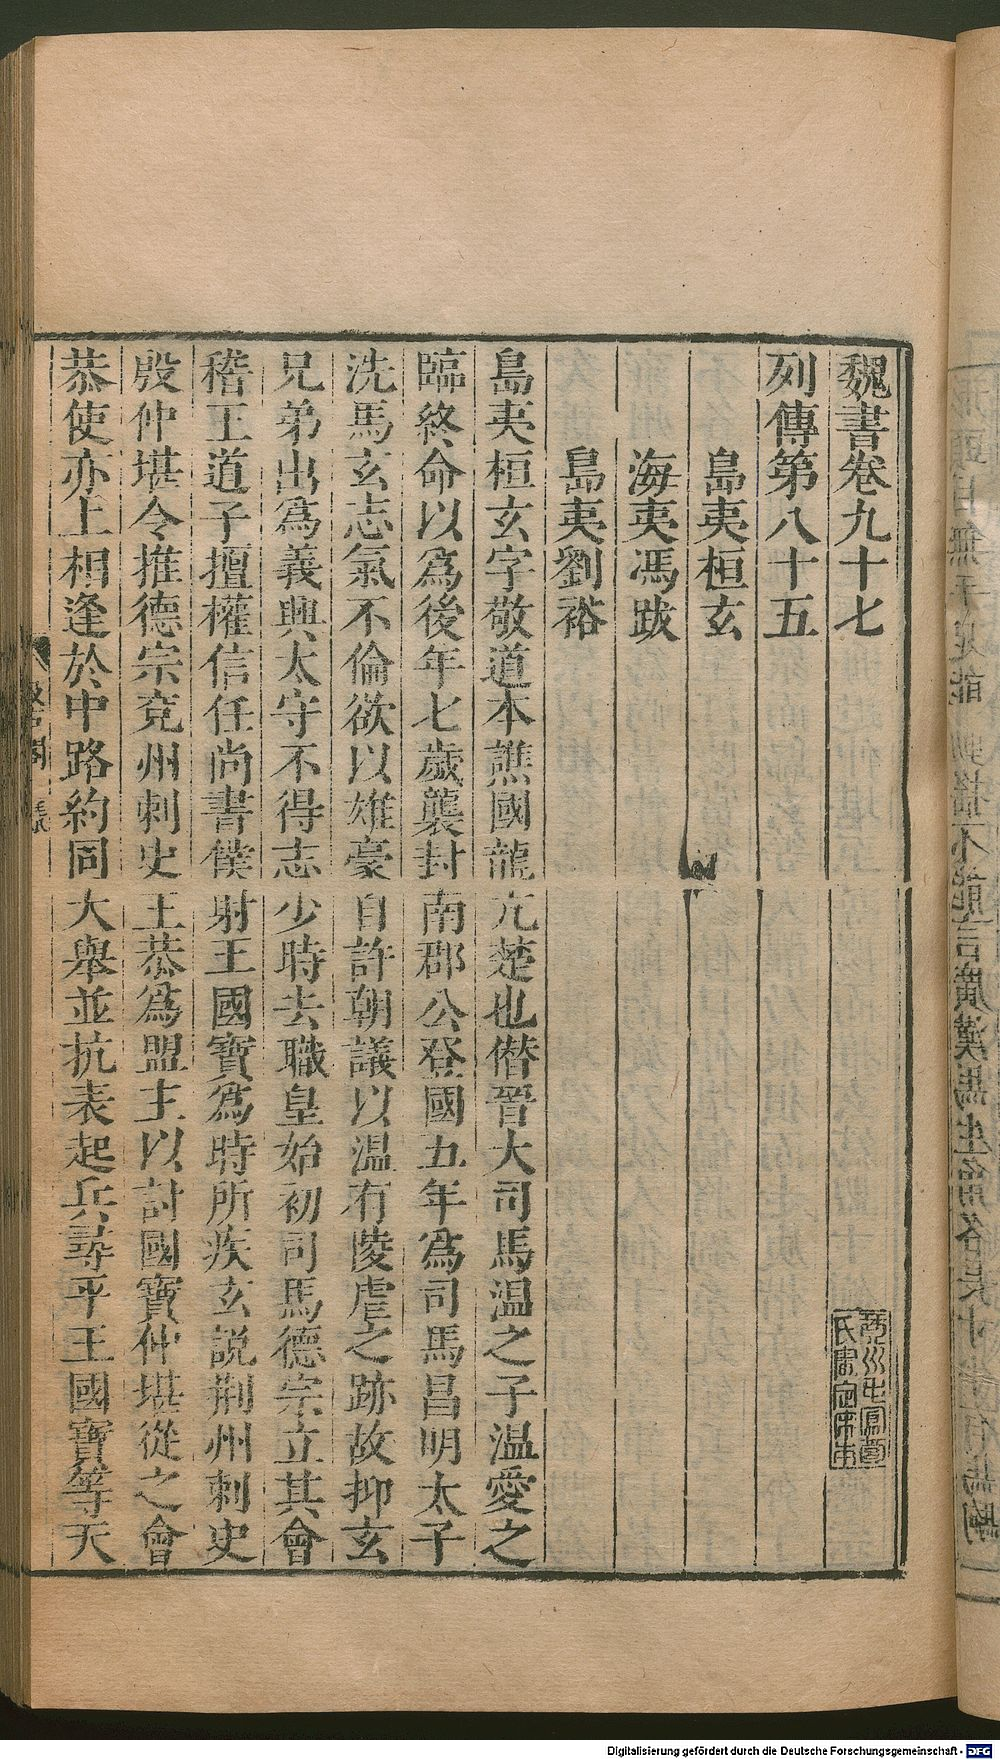 魏書卷九十七
列傳第八十五
島夷桓玄
海夷馮跋
島夷劉裕
島夷桓玄字敬道本譙國龍亢楚也僭晉大司馬温之子温愛之
臨終命以爲後年七歲襲封南郡公登國五年爲司馬昌明太子
洗馬玄志氣不倫欲以雄豪自許朝議以温有陵虐之跡故抑玄
兄弟出爲義興太守不得志少時去職皇始初司馬德宗立其會
稽王道子擅權信任尚書僕射王國寶爲時所疾玄説荆州刺史
殷仲堪令推德宗兗州刺史王恭爲盟主以討國寶仲堪從之會
恭使亦上相逢於中路約同大舉並抗表起兵尋平王國寶等天
Digitalisierung gefördert durch die Deutsche Forschungsgemeinschaft - DFG